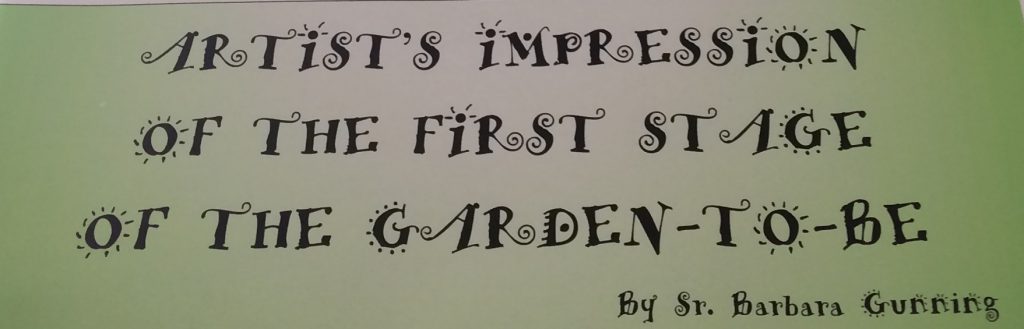 ARTIST'S IMPRESSION
OF THE FIRST STAGE
OF THE GARDEN-TO-BE
By Sr. Barbara Gunning